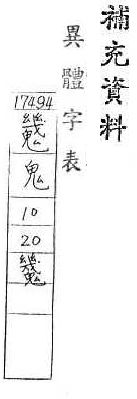 補充資料
異體字表
17494
鬼
10
20